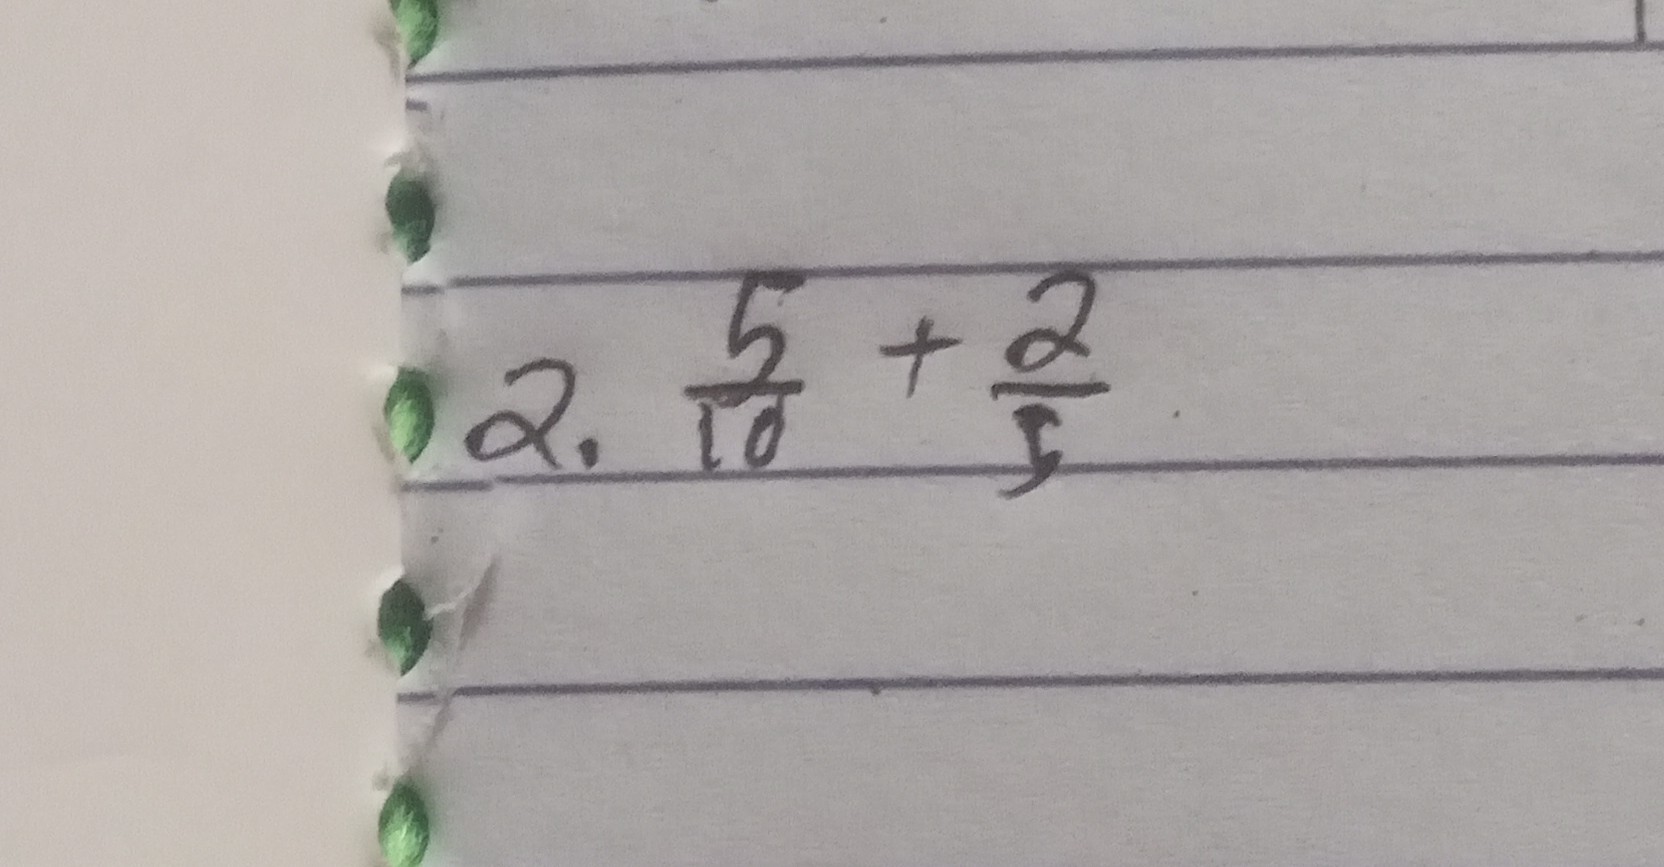 2. 5/10 + 2/5